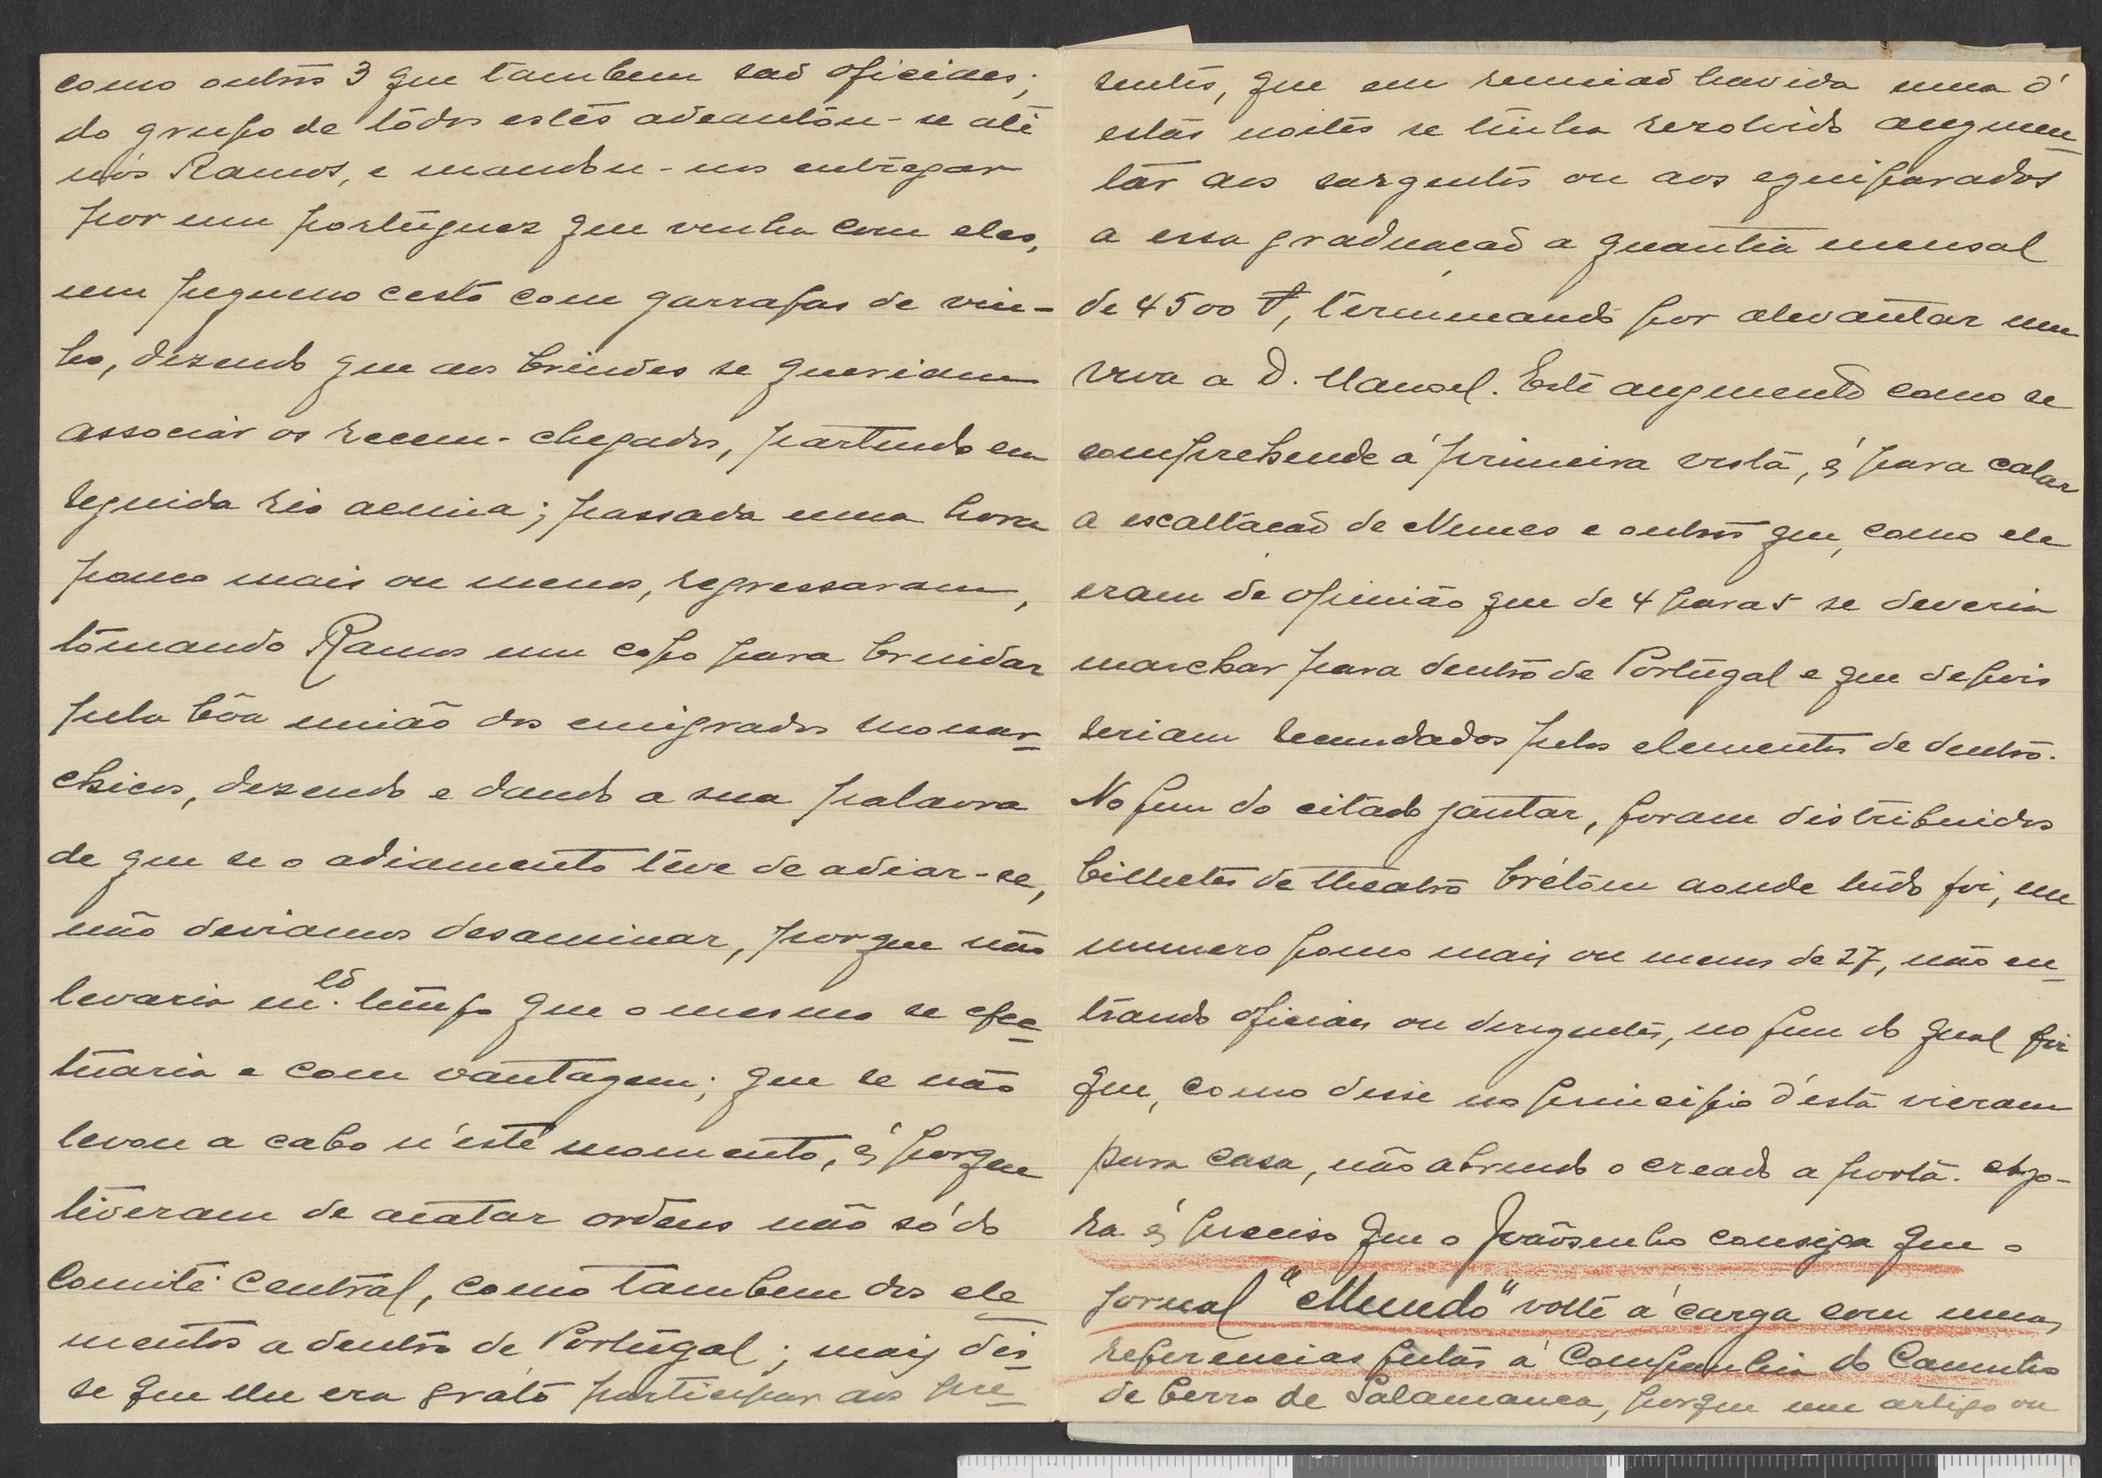 como outros 3 que tambem saõ oficiaes;
do grupo de tôdos estes adeantou-se até
nós Ramos, e mandou-nos entregar
por um portuguez que vinha com eles,
um pequeno cesto com garrafas de vin-
ho, dezendo que aos brindes se queriam
associar os recem-chegados, partindo em
seguida rio acima; passada uma hora
pouco mais ou menos, regressaram,
tomando Ramos um copo para brindar
pela bôa união dos emigrados monar-
chicos, dezendo e dando a sua palavra
de que se o adiamento teve de adiar-se,
não deviamos desaminar, porque não
levaria m.to tempo que o mesmo se efec-
tuaria e com vantagem; que se não
levou a cabo n'este momento, é porque
tiveram de acatar ordens não só do
Comité Central, como tambem dos ele-
mentos a dentro de Portugal; mais dis-
se que lhe era grato participar aos pre-
sentes, que em reuniaõ havida uma d'
estas noites se tinha rezolvido augmen-
tar aos sargentos ou aos equiparados
a essa graduacaõ a quantia mensal
de 4500 ₧, terminando por alevantar um
viva a D. Manoel. Este augmento como se
comprehende á primeira vista, é para calar
a escaltacaõ de Nunes e outros que, como ele
eram de opinião que de 4 para 5 se deveria
marchar para dentro de Portugal e que depois
seriam secundados pelos elementos de dentro.
No fim do citado jantar, foram distribuidos
bilhetes de theatro brétom aonde tudo foi, em
numero pouco mais ou menos de 27, não en-
trando oficiais ou dirigentes, no fim do qual foi
que, como disse no principio d'esta vieram
para casa, não abrindo o creado a porta. Ago-
ra é preciso que o Joãosinho consiga que o
jornal "Mundo" volte á carga com umas
referencias feitas á Companhia do Caminho
de ferro de Salamanca, porque um artigo ou